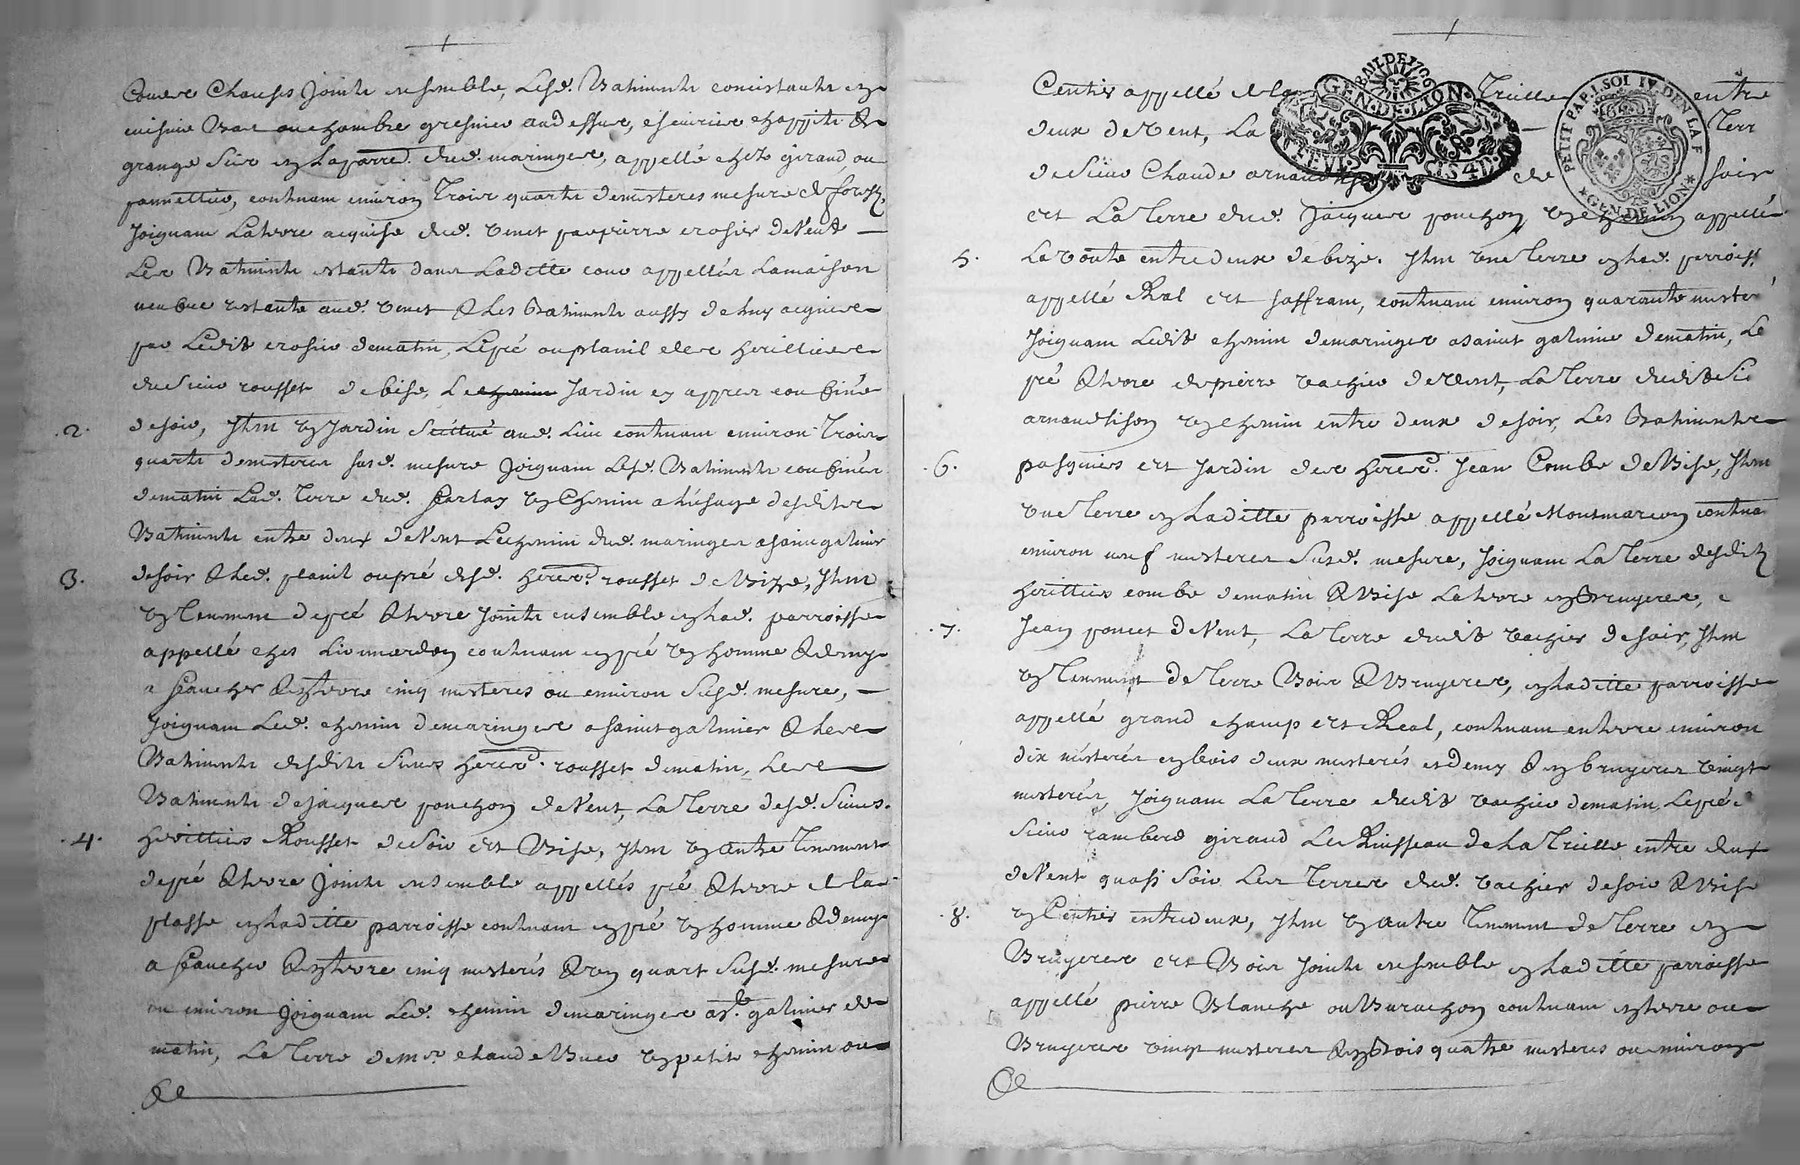 Couer Chauses Jointe ensemble, Lesd. Batiments concistants en
cuisine Bas ou chambre gresnier au dessus, escuirier chappitt &
grange Size en laparred. dud. maringes, appellé chez giraud, ou
pannettier, contenam environ Trois quarts demesteres mesure de forez,
Joignam Laterre acquise dud. benet par pierre crosier de Vent
Les Batiments estants dans Laditte cour appellés Lamaison
neuve restante aud. benet & les Batiments aussy de luy acquis
par Ledit crosier dematin, Lepré ou planil des herittiers
du Sieur rousset de bise, Le Jardin cy appres confiné
.2. desoir, Itm un Jardin Scittué aud. Lieu contenam environ Trois
quarts demesteres susd. mesure Joignam Lesd. Batiments confinés
dematin Lad. Terre dud. un Chemin a lusage desdits
Batiments entre deux de Vent Lechemin dud. maringes asaint galmier
3. desoir & led. planil ou pré desd. herers. rousset de Bize, Itm
un Tenement depré & terre Joints ensemble en lad. parroisse
appellé ches Lionnardon contenam en pré un homme & demy
a faucher & en terre cinq mesteres ou environ susd. mesure,
Joignam Led. chemin demaringes a saint galmier & les
Batiments desdits Sieurs herers. rousset dematin, Les
Batiments de jacques ponchon de Vent, La Terre desd. Sieurs
.4. herittiers Rousset de Soir et Bise, Itm un autre Tenement
depré & terre Joints ensemble appellés pré & terre de la
plasse en laditte parroisse contenam en pré un homme & demy
a faucher & en terre cinq mesterés & un quart susd. mesure
ou environ Joignam Led. chemin demaringes a st. galmier de
matin, La Terre de mr chaude un petit chemin ou
Centier appellé de la Trielle entre
deux de Vent, La Terr
de Sieur Chaude arnaud de soir
et La Terre dud. Jacques ponchon un chemin appellé
5. La voute entredeux debize. Itm une Terre en lad. parroiss
appellé Ral et saffram, contenam environ quarante mester
Joignam Ledit chemin demaringes asaint galmier dematin, Le
pré & terre de pierre vachier de Vent, La Terre dudit Sr
arnaud lison un chemin entre deux desoir, Les Batiments
.6. pasquiers et Jardin des herers. Jean Combe de Bise, Itm
une Terre en laditte parroisse appellé Montmarcon contena
environ neuf mesteres susd. mesure, Joignam La Terre desdits
herittiers combe dematin & Bise Laterre en Bruyeres,
.7. Jean poncet de Vent, La Terre dudit vachier desoir, Itm
un Tenement de Terre Bois & Bruyeres, en laditte parroisse
appellé grand champ et Real, contenam en terre environ
dix mesterés en bois deux mesterés et demy & en bruyeres vingt
mesterés, Joignam La Terre dudit vachier dematin Lepré
Sieur rambert giraud Le Ruisseau de la Trielle entre deux
de Vent quasi Soir Les Terres dud. vachier desoir & Bise
.8. un Centier entredeux, Itm un autre Tenement de Terre en
Bruyeres et Bois Joints ensemble en laditte parroisse
appellé pierre Blanche ou Buruchon contenam en terre ou
Bruyeres vingt mesteres & en Bois quatre mesteres ou environ
BAIL DE 1706
GEN. DE LION
PETIT PAP. 1. SOL IV. DEN. LA F
GEN. DE LION